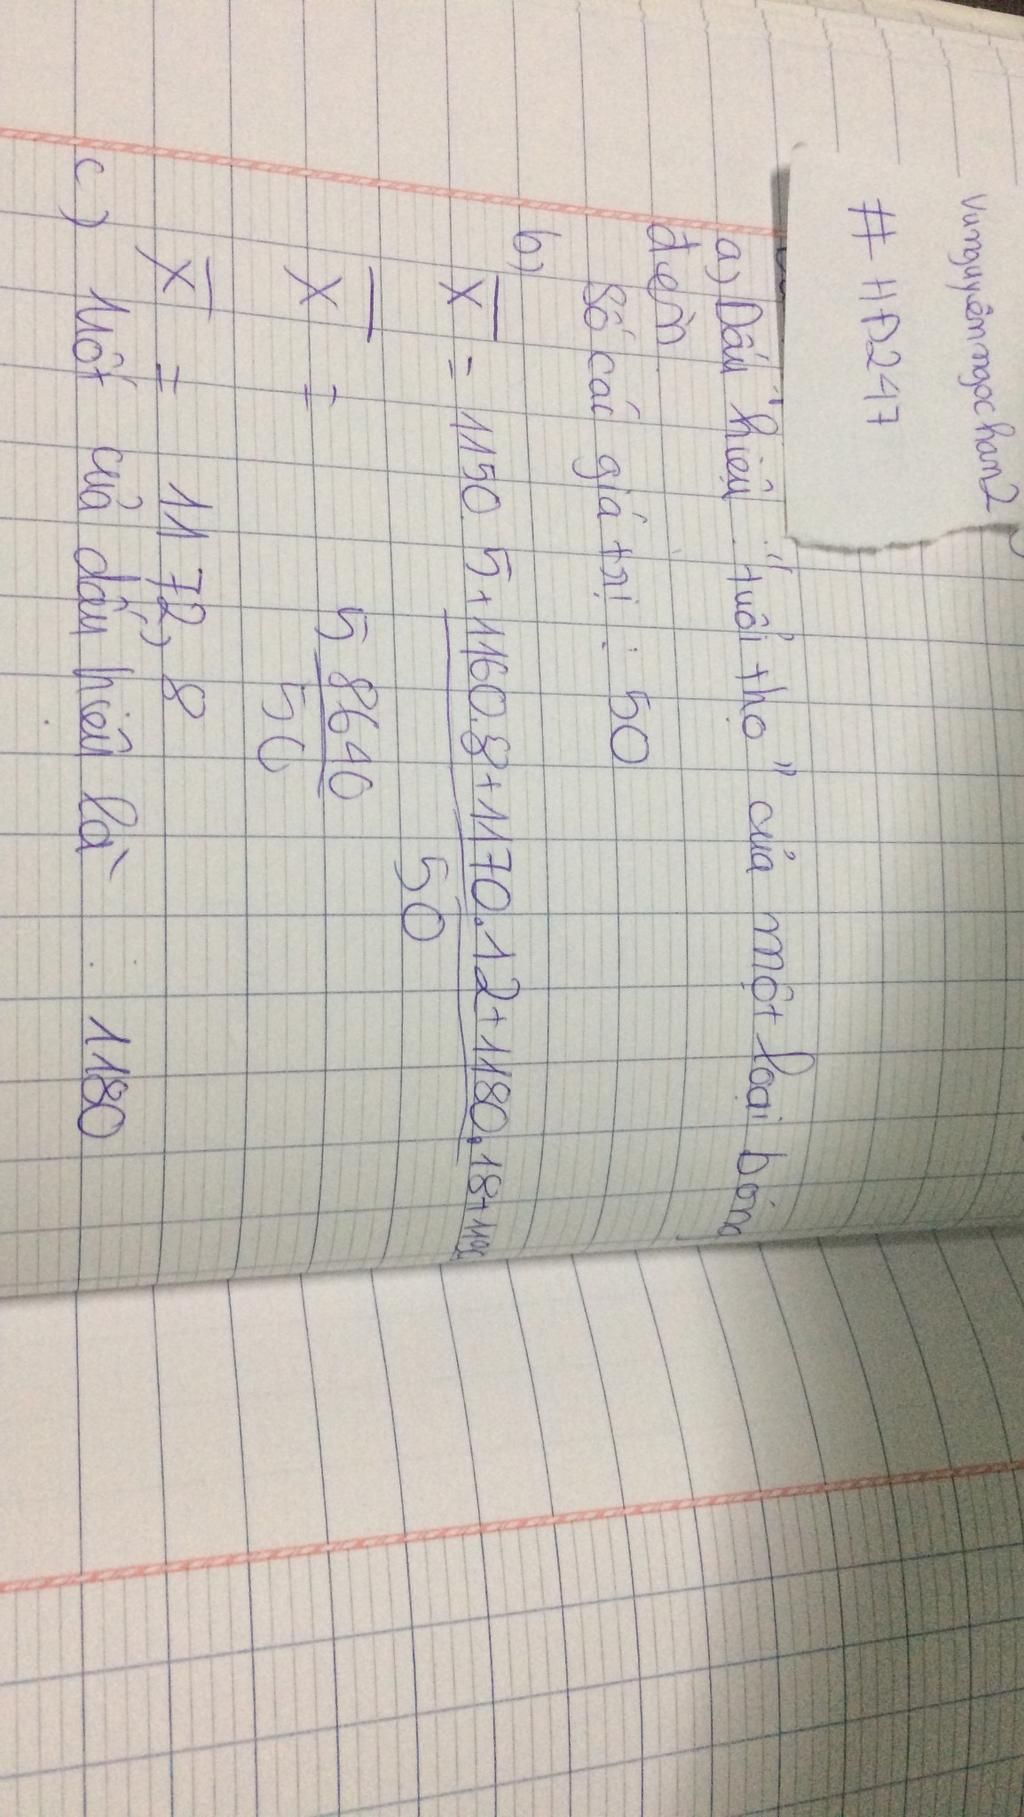 Vunguyênngochan2
# HĐ247
a) Dấu hiệu : "tuổi thọ" của một loại bóng
đèn
Số các giá trị : 50
b)
X̅ = 1150.5+1160.8+1170.12+1180.18+119
50
X̅ = 58640
50
X̅ = 1172,8
c) Mốt của dấu hiệu là : 1180